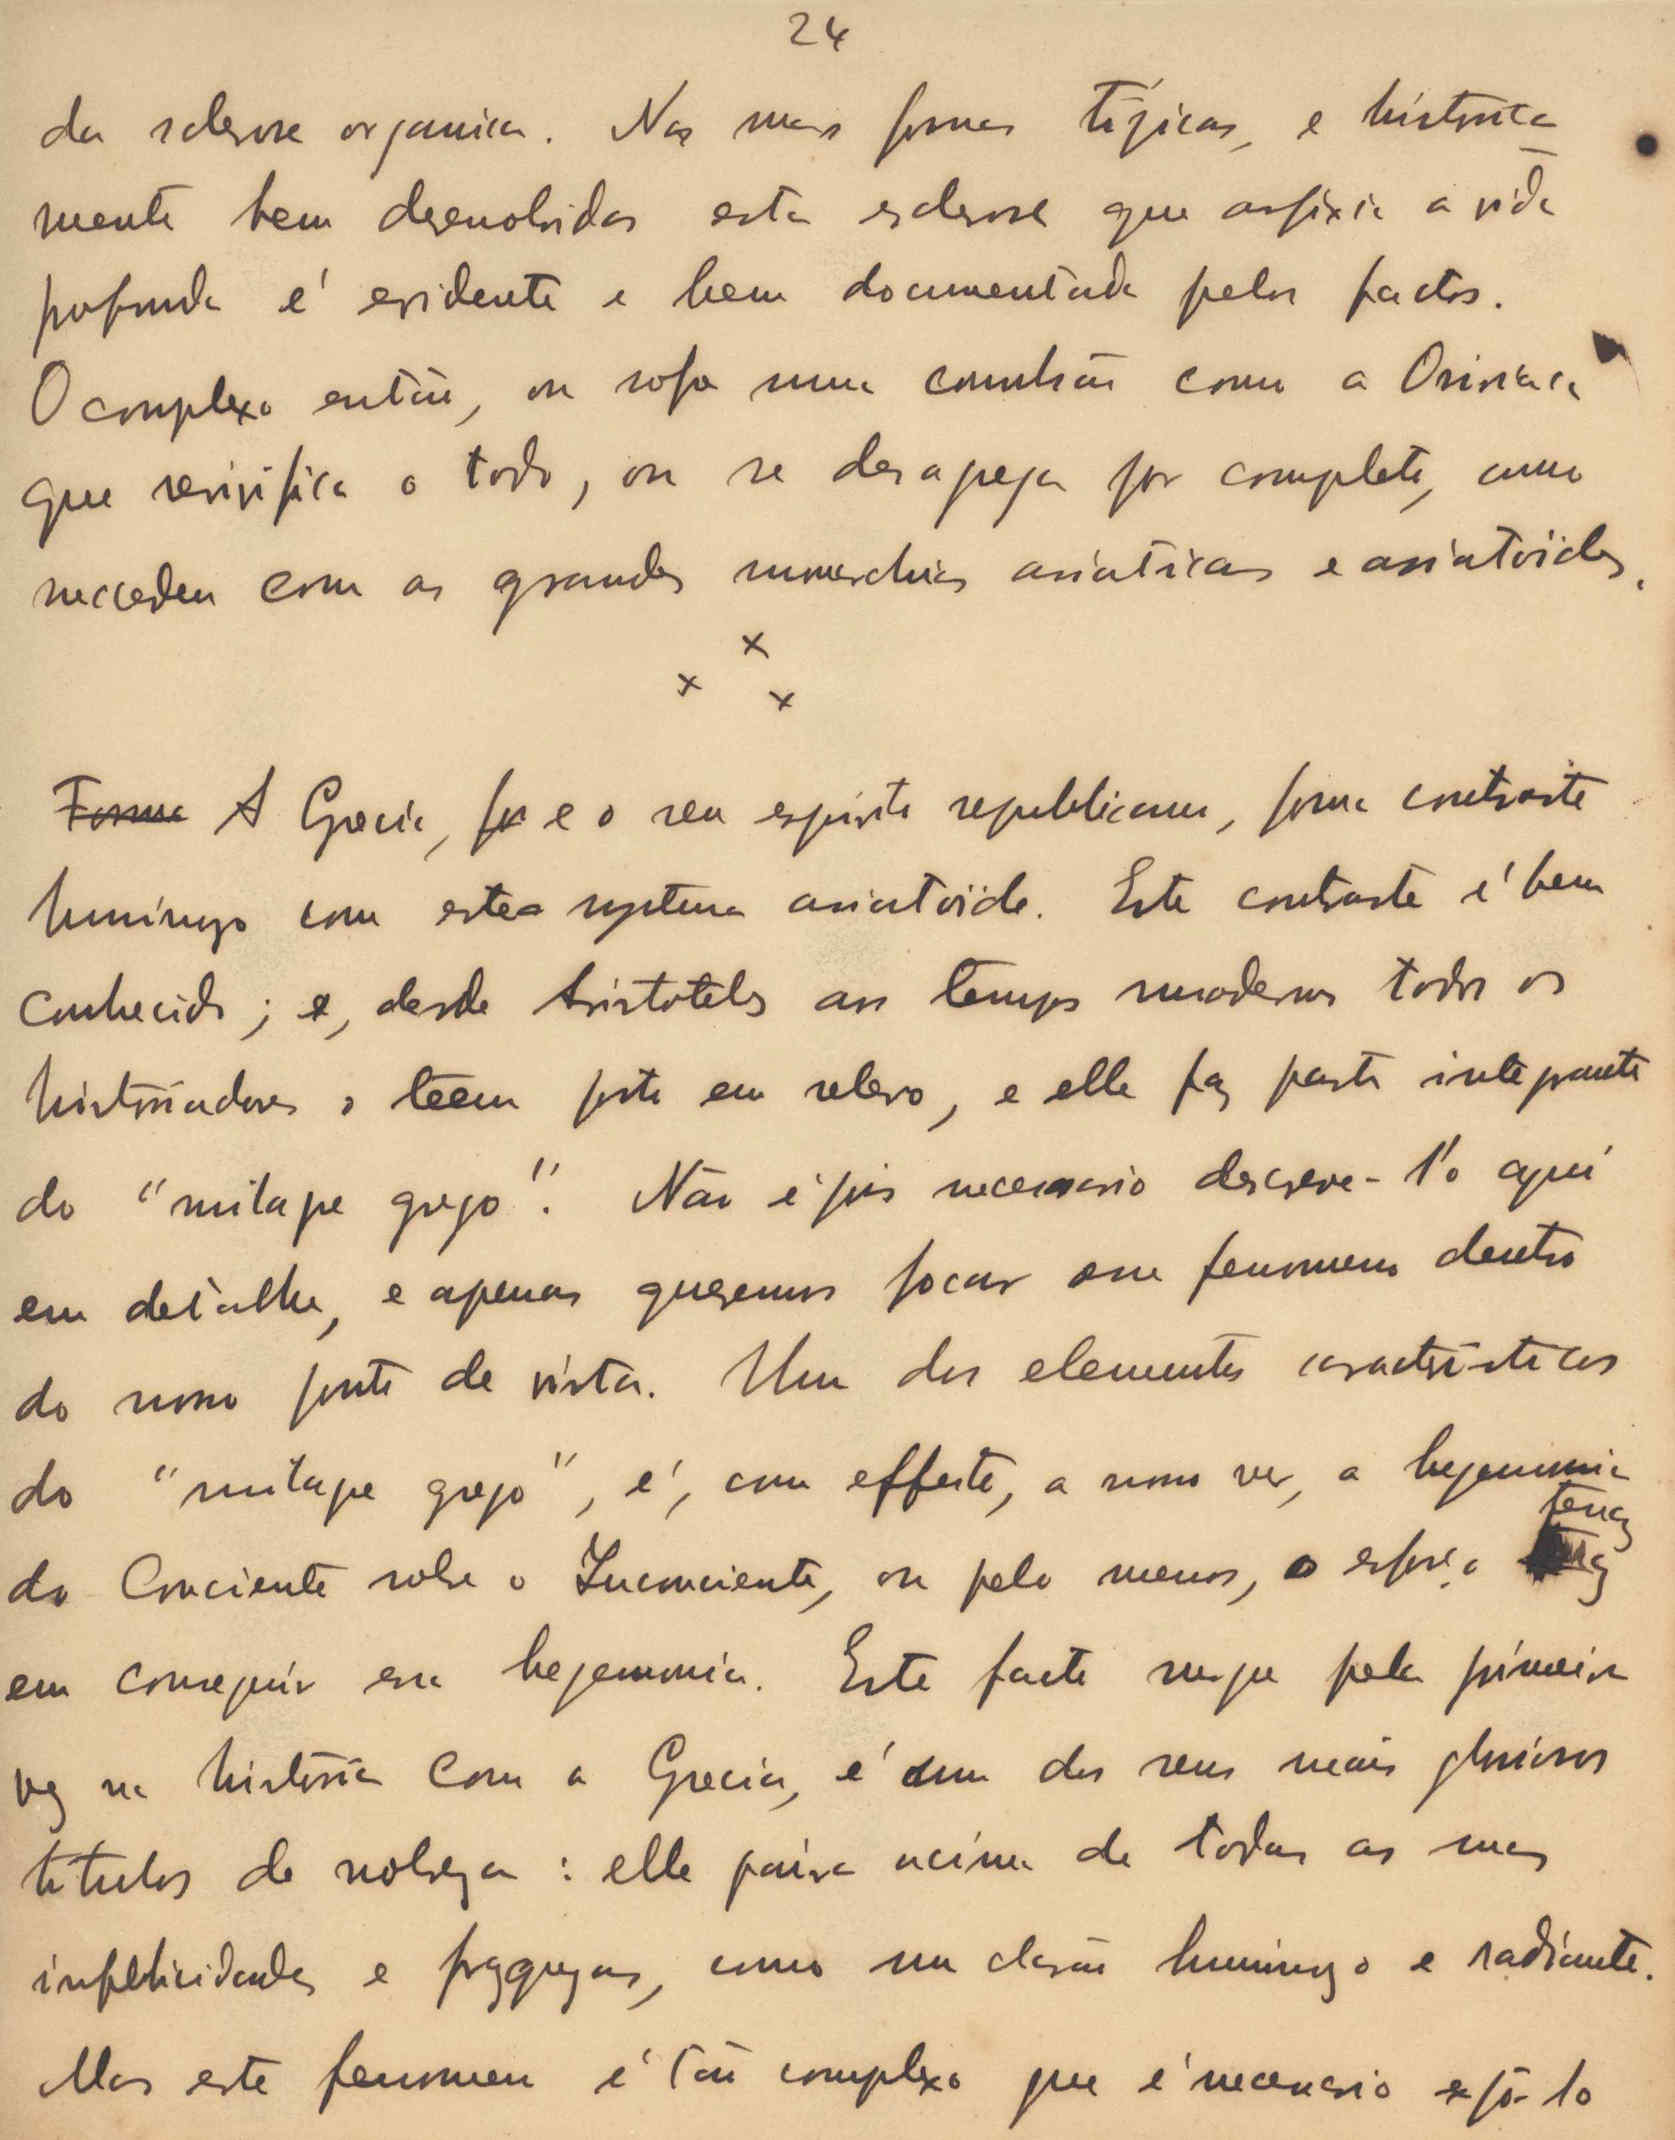 24
da sclerose organica. Nas suas formas típicas, e historica
mente bem desenvolvidas esta esclerose que asfixia a vida
profunda é evidente e bem documentada pelos factos.
O complexo então, ou sofre uma convulsão como a Osiriaca
que revivifica o todo, ou se desagrega por completo, como
succedeu com as grandes monarchias asiaticas e asiatoides.
x x x
Forma A Grecia, e o seu espirito republicano, forma contraste
luminoso com este systema asiatoide. Este contraste é bem
conhecido; e, desde Aristoteles aos tempos modernos todos os
historiadores o teem posto em relevo, e elle faz parte integrante
do "milagre grego". Não é pois necessario descreve-l'o aqui
em detalhe, e apenas queremos focar esse fenomeno dentro
do nosso ponto de vista. Um dos elementos caracteristicos
do "milagre grego", é, com effeito, a nosso ver, a hegemonia
do Conciente sobre o Inconciente, ou pelo menos, o esforço tenaz
em conseguir essa hegemonia. Este facto surge pela primeira
vez na historia com a Grecia, é um dos seus mais gloriosos
titulos de nobreza: elle paira acima de todas as suas
infelicidades e fraquezas, como um clarão luminoso e radiante.
Mas este fenomeno é tão complexo que é necessario expô-lo